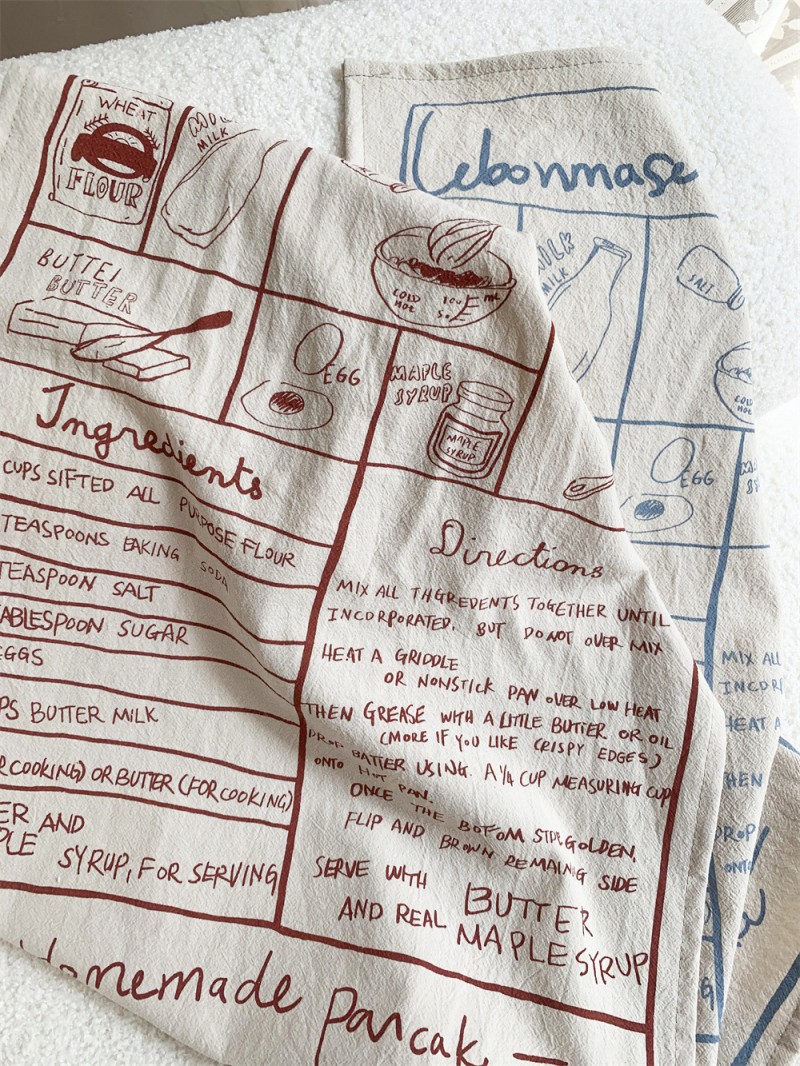 WHEAT
FLOUR
MILK
BUTTER
COLD
HOT
EGG
MAPLE
SYRUP
MAPLE
SYRUP
Ingredients
CUPS SIFTED ALL PURPOSE FLOUR
TEASPOONS BAKING SODA
TEASPOON SALT
TABLESPOON SUGAR
EGGS
PS BUTTER MILK
R COOKING) OR BUTTER (FOR COOKING)
ER AND
PLE SYRUP, FOR SERVING
Directions
MIX ALL THGREDENTS TOGETHER UNTIL
INCORPORATED, BUT DO NOT OVER MIX
HEAT A GRIDDLE
OR NONSTICK PAN OVER LOW HEAT
THEN GREASE WITH A LITTLE BUTTER OR OIL
(MORE IF YOU LIKE CRISPY EDGES)
DROP BATTER USING. A 1/4 CUP MEASURING CUP
ONTO HOT PAN.
ONCE THE BOTOM SIDE GOLDEN,
FLIP AND BROWN REMAINING SIDE
SERVE WITH BUTTER
AND REAL MAPLE SYRUP
Homemade Pancak
Lebonmase
MILK
MILK
SALT
COLD
HOT
EGG
MIX ALL
INCOR
HEAT A
HEN
DROP
ONTO